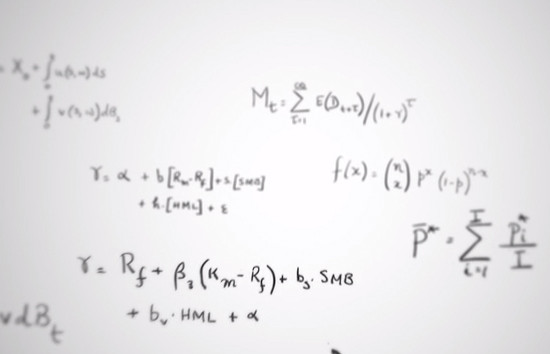 = X₀ + ∫ u(s,ω)ds
+ ∫ v(s,ω)dBₛ
Mₜ = ∑ E(Dₜ₊τ)/(1+r)^τ
∞
τ=1
r = α + b[Rₘ-R_f]+s[SMB]
+ h·[HML] + ε
f(x) = (n x) pˣ (1-p)ⁿ⁻ˣ
p̅* = ∑ pᵢ* / I
I
i=1
r = R_f + β₃(Kₘ - R_f) + bₛ·SMB
+ bᵥ·HML + α
vdBₜ